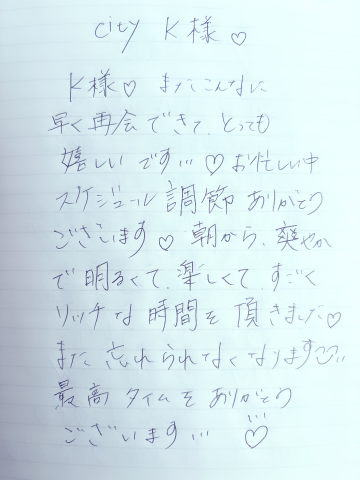 city K様♡
K様♡ またこんなに
早く再会できて、とっても
嬉しいです…♡お忙しい中
スケジュール調節ありがとう
ございます♡ 朝から、爽やか
で明るくて、楽しくて、すごく
リッチな時間を頂きました♡
また忘れられなくなります♡…
最高タイムをありがとう
ございます… ♡